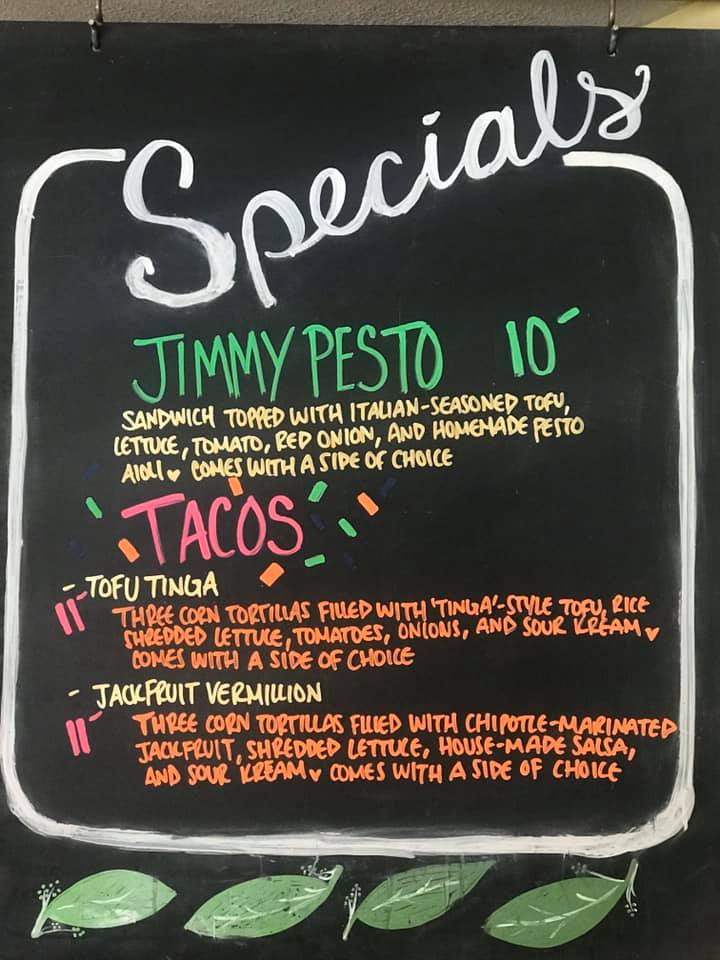 Specials
JIMMY PESTO 10-
SANDWICH TOPPED WITH ITALIAN-SEASONED TOFU,
LETTUCE, TOMATO, RED ONION, AND HOMEMADE PESTO
AIOLI ♥ COMES WITH A SIDE OF CHOICE
TACOS
- TOFU TINGA
11- THREE CORN TORTILLAS FILLED WITH 'TINGA'-STYLE TOFU, RICE
SHREDDED LETTUCE, TOMATOES, ONIONS, AND SOUR KREAM ♥
COMES WITH A SIDE OF CHOICE
- JACKFRUIT VERMILLION
11- THREE CORN TORTILLAS FILLED WITH CHIPOTLE-MARINATED
JACKFRUIT, SHREDDED LETTUCE, HOUSE-MADE SALSA,
AND SOUR KREAM ♥ COMES WITH A SIDE OF CHOICE